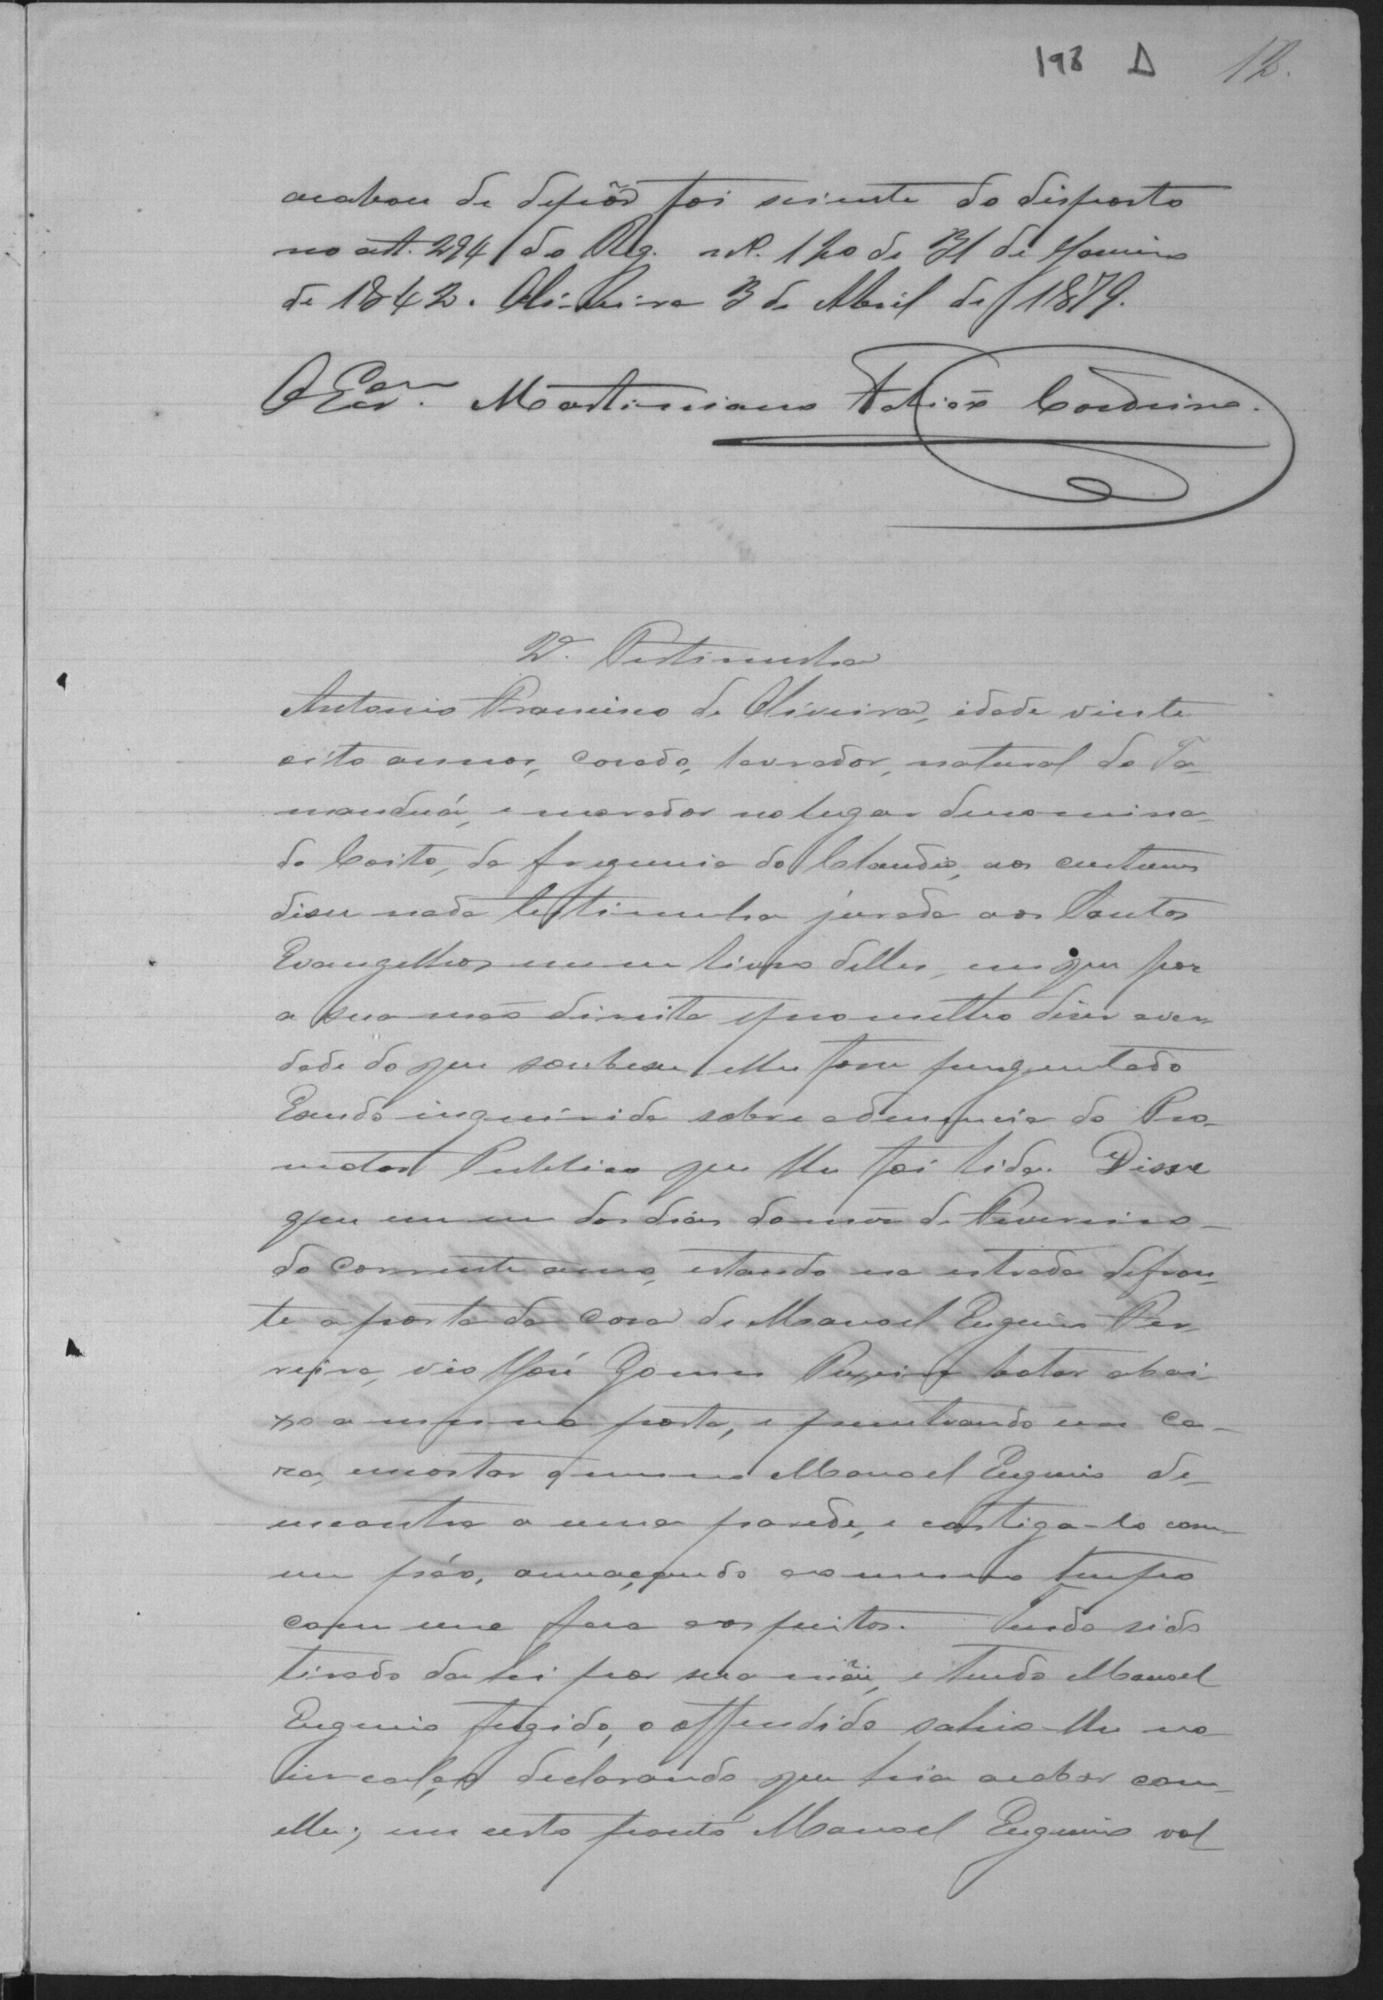 198 D 12.
acabou de depôr foi sciente do disposto
no art. 294 do Reg. nº. 120 de 31 de Janeiro
de 1842. Oliveira 3 de Abril de 1879.
O Escr.am Martiniano Fabião Cordeiro.
2ª. Testimunha
Antonio Francisco de Oliveira, idade vinte
oito annos, casado, lavrador, natural do Ta-
manduá, e morador no lugar denomina-
do Corito, da freguesia do Claudio, aos custumes
disse nada testimunha jurada aos Santos
Evangelhos em um livro delles, em que poz
a sua mão direita e prometteo dizer a ver-
dade do que soubesse e lhe fosse perguntado
E sendo inquirida sobre a denuncia do Pro-
motor Publico que lhe foi lida. Disse
que em um dos dias do mez de Fevereiro
do corrente anno, estando na estrada defron-
te a porta da casa de Manoel Eugenio Per-
reira, vio José Gomes botar abai-
xo a mesma porta, e penetrando em ca-
sa, encostar o mesmo Manoel Eugenio de-
encontro a uma parede, e castiga-lo com
um páo, ameaçando ao mesmo tempo
com uma faca aos peitos. Tendo sido
tirado da hi por sua mãi, e tendo Manoel
Eugenio fugido, o offendido sahio-lhe no
incalço declarando que hia acabar com
elle; em certo ponto Manoel Eugenio vol